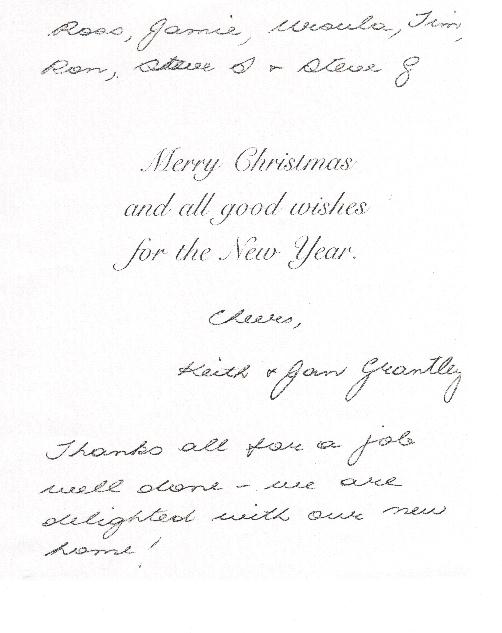 Ross, Jamie, Ursula, Tim,
Ron, Steve S & Steve G
Merry Christmas
and all good wishes
for the New Year.
Cheers,
Keith & Jan Grantley
Thanks all for a job
well done - we are
delighted with our new
home!